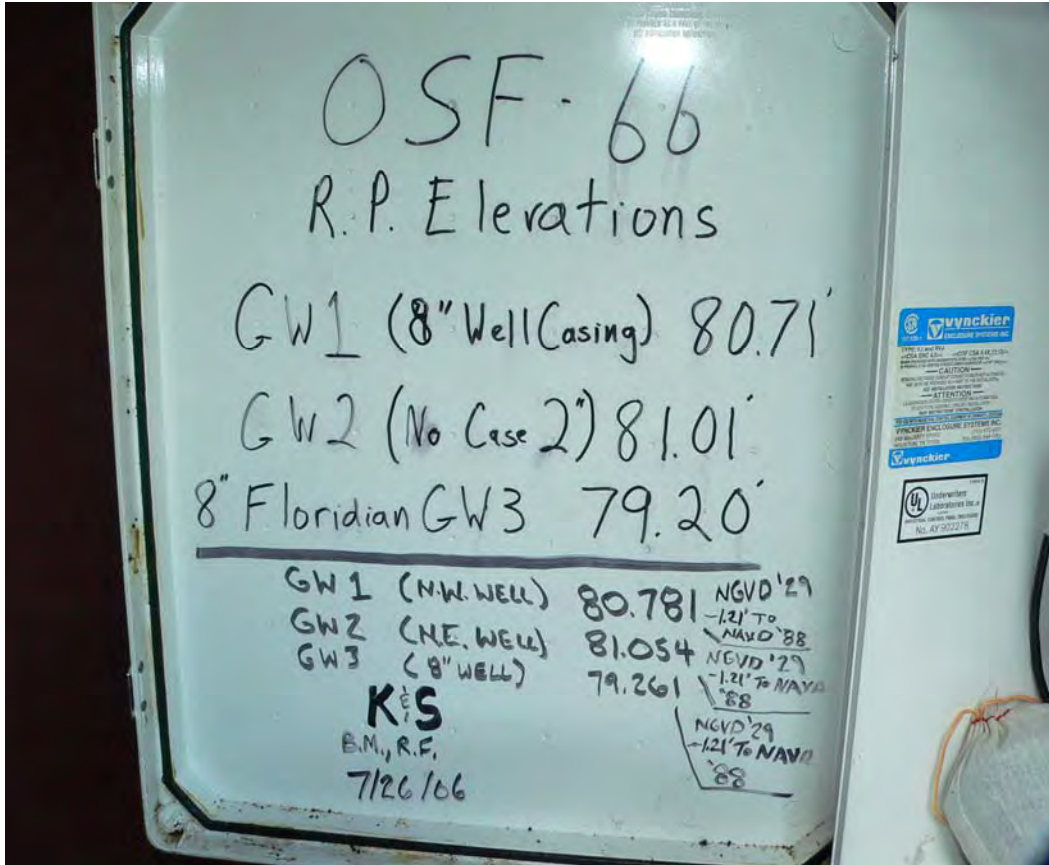 OSF-66
R.P. Elevations
GW1 (8" Well Casing) 80.71'
GW2 (No Case 2") 81.01'
8" Floridian GW3 79.20'
GW1 (N.W. WELL) 80.781 NGVD '29
-1.21' TO
NAVD '88
GW2 (N.E. WELL) 81.054 NGVD '29
-1.21' TO NAVD
'88
GW3 (8" WELL) 79.261
NGVD '29
-1.21' TO NAVD
'88
K&S
B.M., R.F.
7/26/06
vynckier
ENCLOSURE SYSTEMS INC.
CAUTION
ATTENTION
VYNCKIER ENCLOSURE SYSTEMS INC.
vynckier
UL
Underwriters
Laboratories Inc.
No. AY 902278